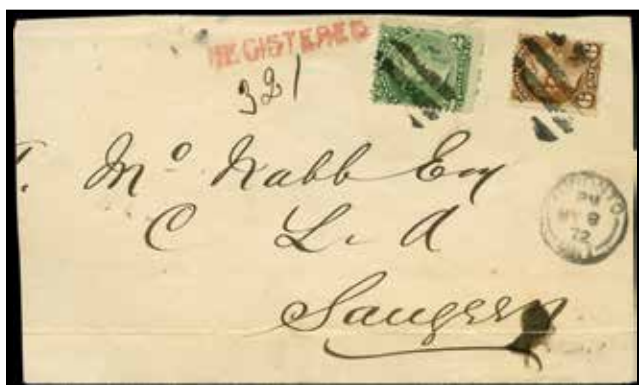 REGISTERED
321
T. Mc Nabb Esq
C L. A
Saugeen
TORONTO
PM
MY 8
72